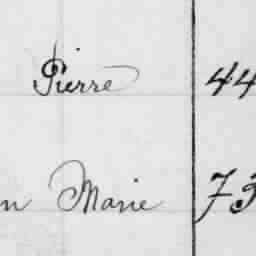 Pierre 44
n Marie 73